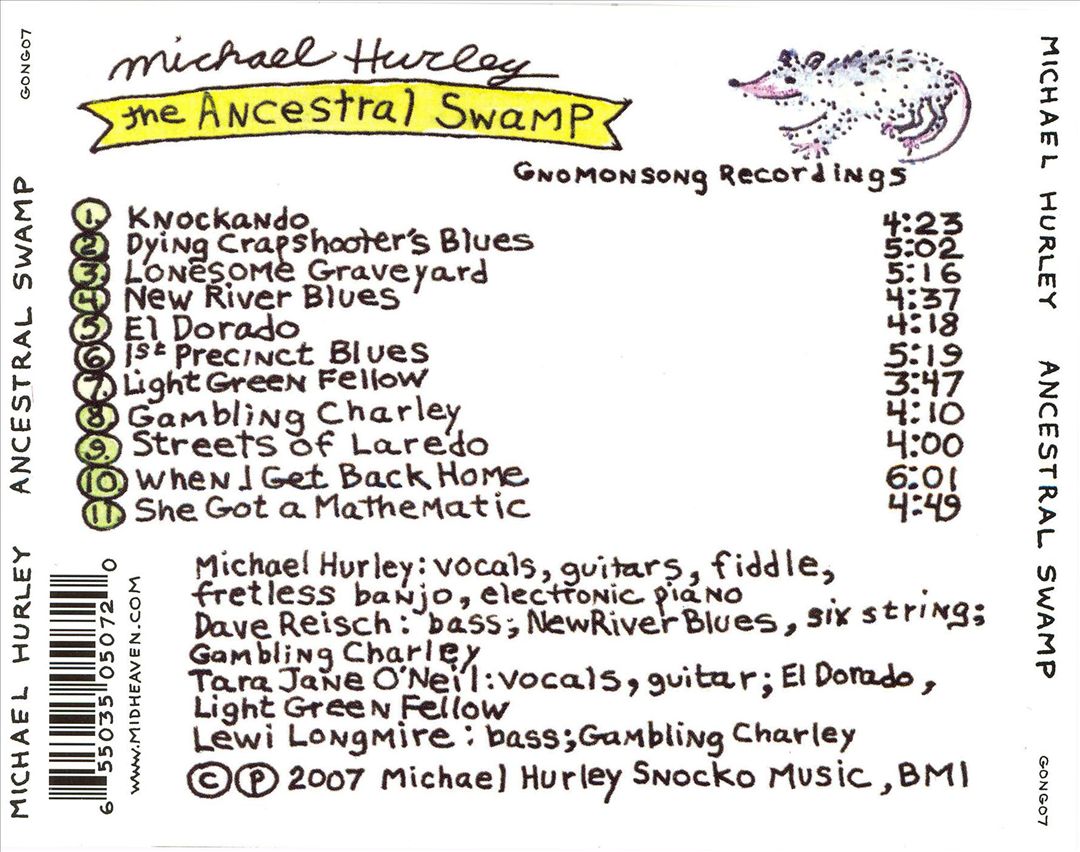 GONG07
MICHAEL HURLEY ANCESTRAL SWAMP
michael Hurley
the Ancestral Swamp
Gnomonsong Recordings
1. Knockando 4:23
2. Dying Crapshooter's Blues 5:02
3. Lonesome Graveyard 5:16
4. New River Blues 4:37
5. El Dorado 4:18
6. 1st Precinct Blues 5:19
7. Light Green Fellow 3:47
8. Gambling Charley 4:10
9. Streets of Laredo 4:00
10. When I Get Back Home 6:01
11. She Got a Mathematic 4:49
Michael Hurley: vocals, guitars, fiddle,
fretless banjo, electronic piano
Dave Reisch: bass; New River Blues, six string;
Gambling Charley
Tara Jane O'Neil: vocals, guitar; El Dorado,
Light Green Fellow
Lewi Longmire: bass; Gambling Charley
©℗ 2007 Michael Hurley Snocko Music, BMI
6 55035 05072 0
WWW.MIDHEAVEN.COM
MICHAEL HURLEY ANCESTRAL SWAMP
GONG07